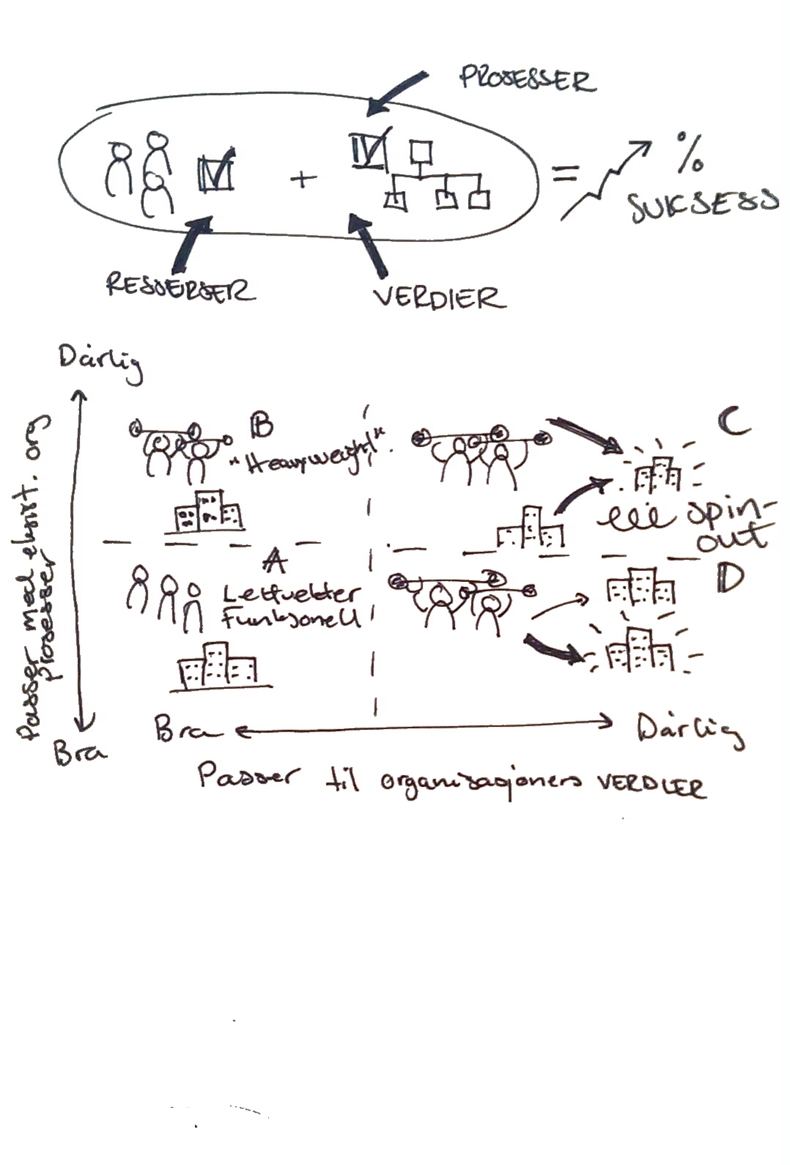 PROSESSER
+
= %
SUKSESS
RESSERSER
VERDIER
Dårlig
B
"Heavyweight"
C
spin-
out
A
Lettvekter
Funksjonell
D
Passer med eksist. org
prosesser
Bra
Bra
Dårlig
Passer til organisasjoners VERDIER